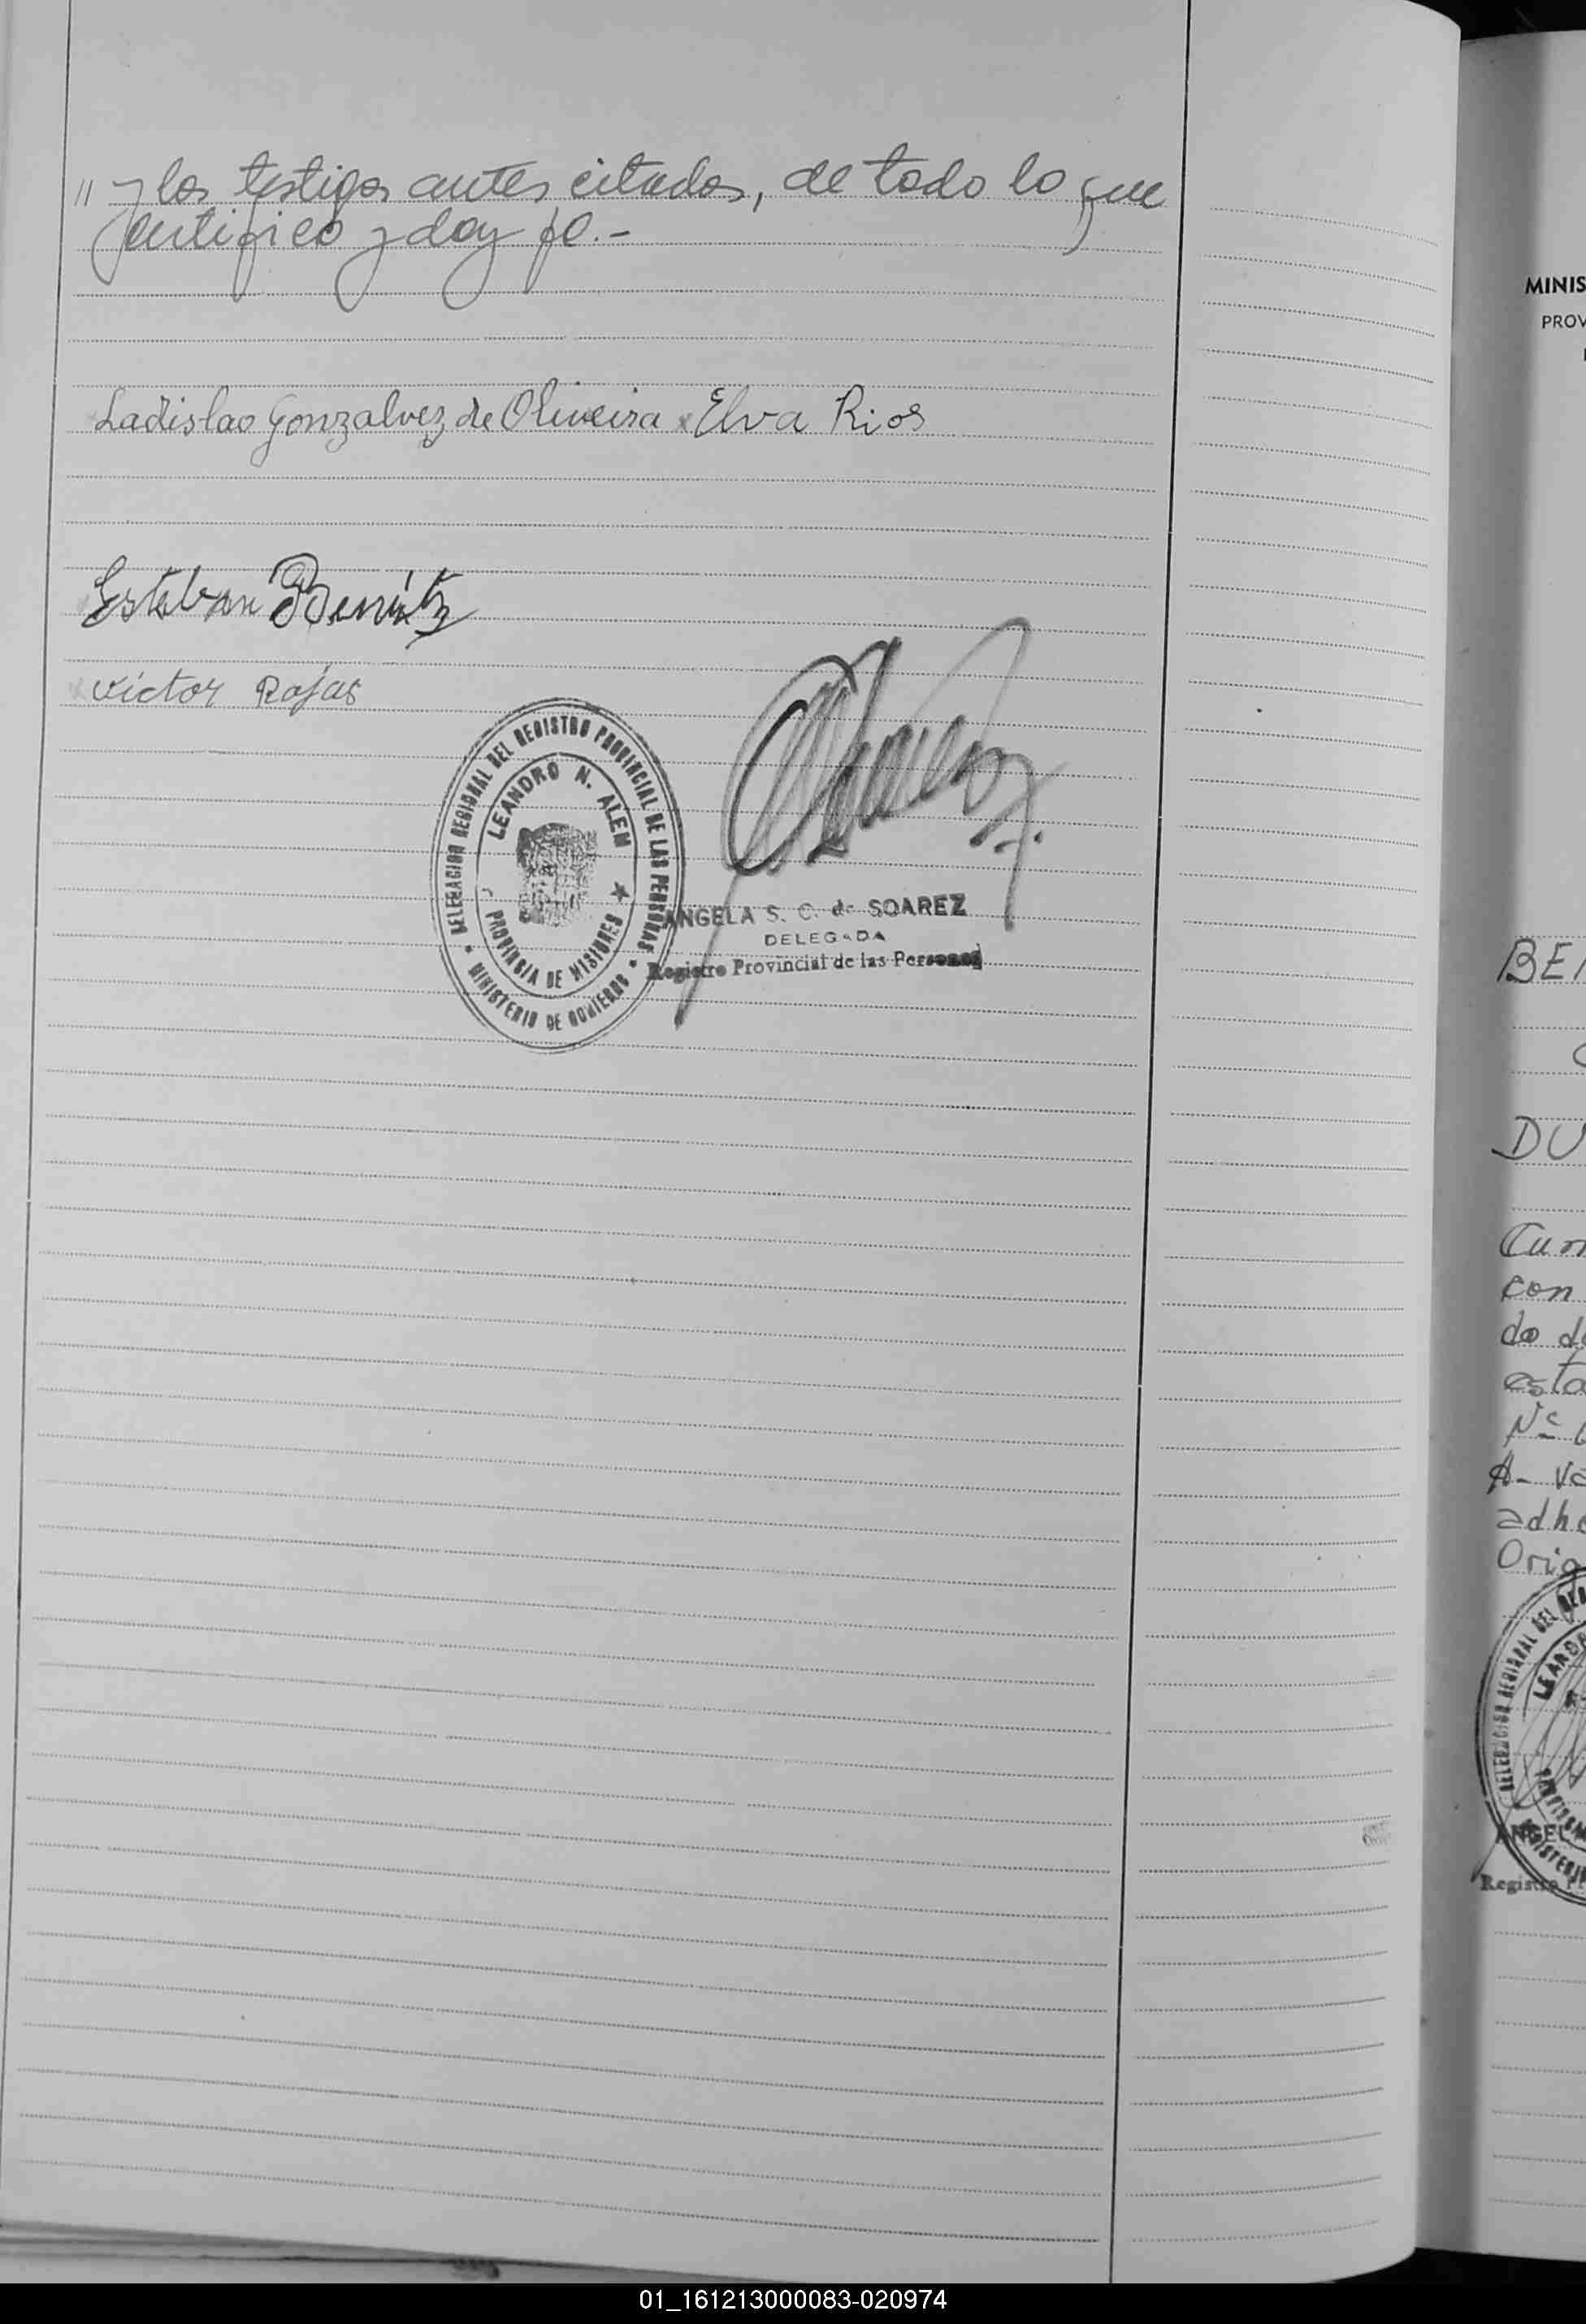 " y los testigos antes citados, de todo lo que
certifico y doy fe.-
Ladislao Gonzalvez de Oliveira x Elva Rios
Esteban Benítz
Victor Rojas
DELEGACION REGIONAL DEL REGISTRO PROVINCIAL DE LAS PERSONAS
MINISTERIO DE GOBIERNO
LEANDRO N. ALEM
PROVINCIA DE MISIONES
ANGELA S. C. de SOAREZ
DELEGADA
Registro Provincial de las Personas
MINIS
PROV
BE
DU
Cum
con
do d
esta
Nº
A- Va
adhe
Orig
DELEGACION REGIONAL DEL REG
LEAND
ANGEL
MINISTERI
Registro Pr
01_161213000083-020974